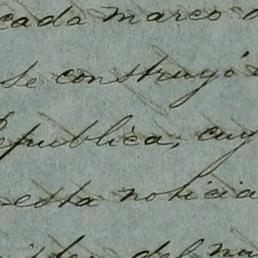 cada marco
se construyó
Republica, cuy
esta noticia
del